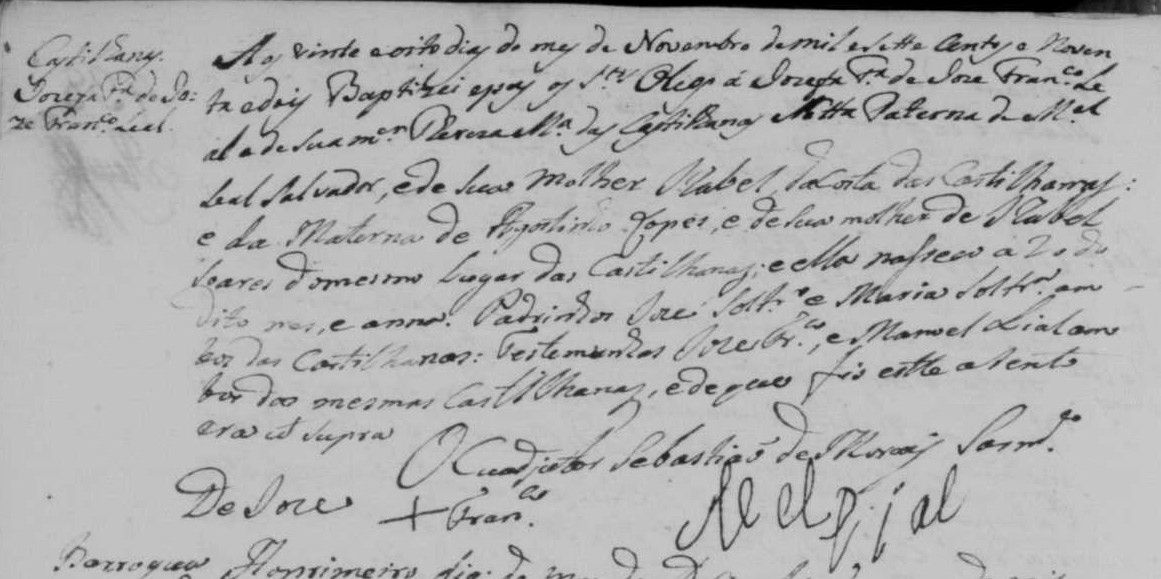 Castilhanas.
Jozefa Fa. de Jo:
ze Franco. Leal.
Aos vinte e oito dias do mes de Novembro de mil e sette centos e noven
ta e dois Baptizei e pus os Stos. Oleos á Jozefa Fa. de Joze Franco. Le
al e de sua mer. Thereza Ma. das Castilhanas Netta Paterna de Mel.
Leal Salvador, e de sua molher Izabel da Costa das Castilhanas:
e da Materna de Agostinho Lopes, e de sua molher de Izabel
Soares do mesmo lugar das Castilhanas; e ella nasceo a 20 do
dito mes, e anno. Padrinhos Joze Soltro. e Maria Soltra. am
bos das Castilhanas: Testemunhas Joze Fr.co, e Manoel Lial am
bos das mesmas Castilhanas, e de que fis este asento
era ut supra
O Cuadjutor Sebastião de Moraes Sarmto.
De Joze + Franco.
Barroqua Ao primeiro dia do mes de